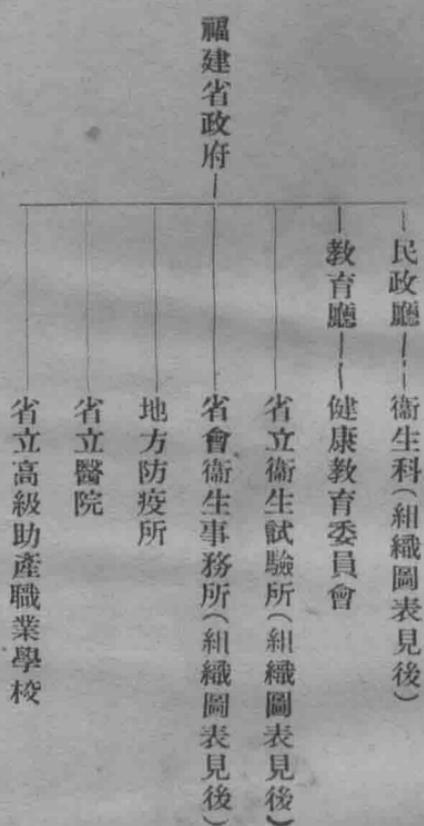 福建省政府
民政廳
衞生科(組織圖表見後)
教育廳
健康教育委員會
省立衞生試驗所(組織圖表見後)
省會衞生事務所(組織圖表見後)
地方防疫所
省立醫院
省立高級助產職業學校